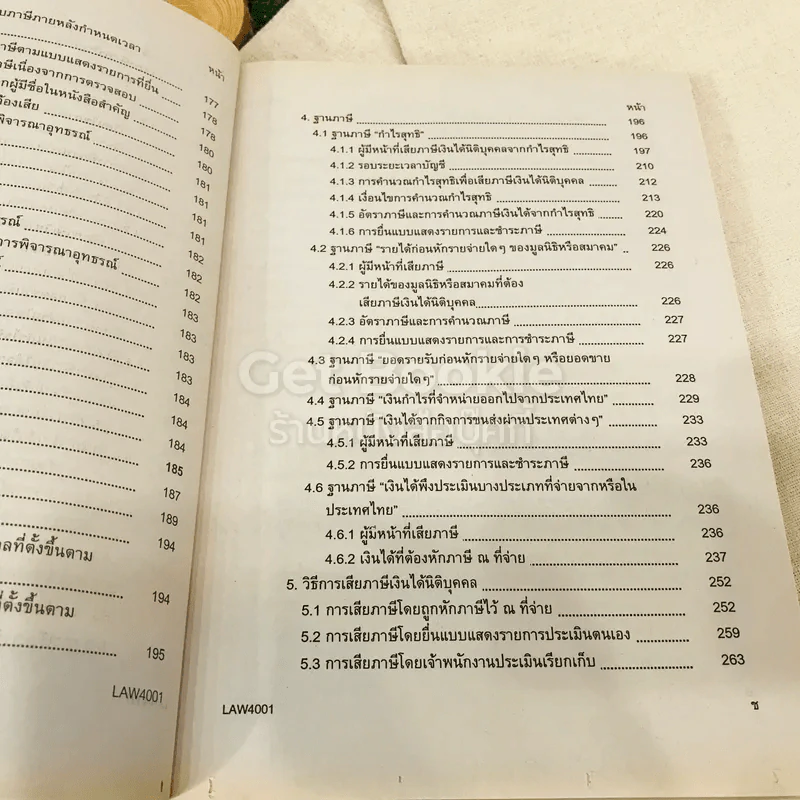 บภาษีภายหลังกำหนดเวลา
หน้า
าษีตามแบบแสดงรายการที่ยื่น
177
าษีเนื่องจากการตรวจสอบ
178
กผู้มีชื่อในหนังสือสำคัญ
178
้องเสีย
180
พิจารณาอุทธรณ์
180
181
181
181
รณ์
182
การพิจารณาอุทธรณ์
182
182
183
183
183
183
184
184
184
185
187
189
194
ลที่ตั้งขึ้นตาม
194
ตั้งขึ้นตาม
195
LAW4001
หน้า
4. ฐานภาษี 196
4.1 ฐานภาษี "กำไรสุทธิ" 196
4.1.1 ผู้มีหน้าที่เสียภาษีเงินได้นิติบุคคลจากกำไรสุทธิ 197
4.1.2 รอบระยะเวลาบัญชี 210
4.1.3 การคำนวณกำไรสุทธิเพื่อเสียภาษีเงินได้นิติบุคคล 212
4.1.4 เงื่อนไขการคำนวณกำไรสุทธิ 213
4.1.5 อัตราภาษีและการคำนวณภาษีเงินได้จากกำไรสุทธิ 220
4.1.6 การยื่นแบบแสดงรายการและชำระภาษี 224
4.2 ฐานภาษี "รายได้ก่อนหักรายจ่ายใดๆ ของมูลนิธิหรือสมาคม" 226
4.2.1 ผู้มีหน้าที่เสียภาษี 226
4.2.2 รายได้ของมูลนิธิหรือสมาคมที่ต้อง
เสียภาษีเงินได้นิติบุคคล 226
4.2.3 อัตราภาษีและการคำนวณภาษี 227
4.2.4 การยื่นแบบแสดงรายการและการชำระภาษี 227
4.3 ฐานภาษี "ยอดรายรับก่อนหักรายจ่ายใดๆ หรือยอดขาย
ก่อนหักรายจ่ายใดๆ" 228
4.4 ฐานภาษี "เงินกำไรที่จำหน่ายออกไปจากประเทศไทย" 229
4.5 ฐานภาษี "เงินได้จากกิจการขนส่งผ่านประเทศต่างๆ" 233
4.5.1 ผู้มีหน้าที่เสียภาษี 233
4.5.2 การยื่นแบบแสดงรายการและชำระภาษี 236
4.6 ฐานภาษี "เงินได้พึงประเมินบางประเภทที่จ่ายจากหรือใน
ประเทศไทย" 236
4.6.1 ผู้มีหน้าที่เสียภาษี 236
4.6.2 เงินได้ที่ต้องหักภาษี ณ ที่จ่าย 237
5. วิธีการเสียภาษีเงินได้นิติบุคคล 252
5.1 การเสียภาษีโดยถูกหักภาษีไว้ ณ ที่จ่าย 252
5.2 การเสียภาษีโดยยื่นแบบแสดงรายการประเมินตนเอง 259
5.3 การเสียภาษีโดยเจ้าพนักงานประเมินเรียกเก็บ 263
LAW4001 ช
Get Bookie